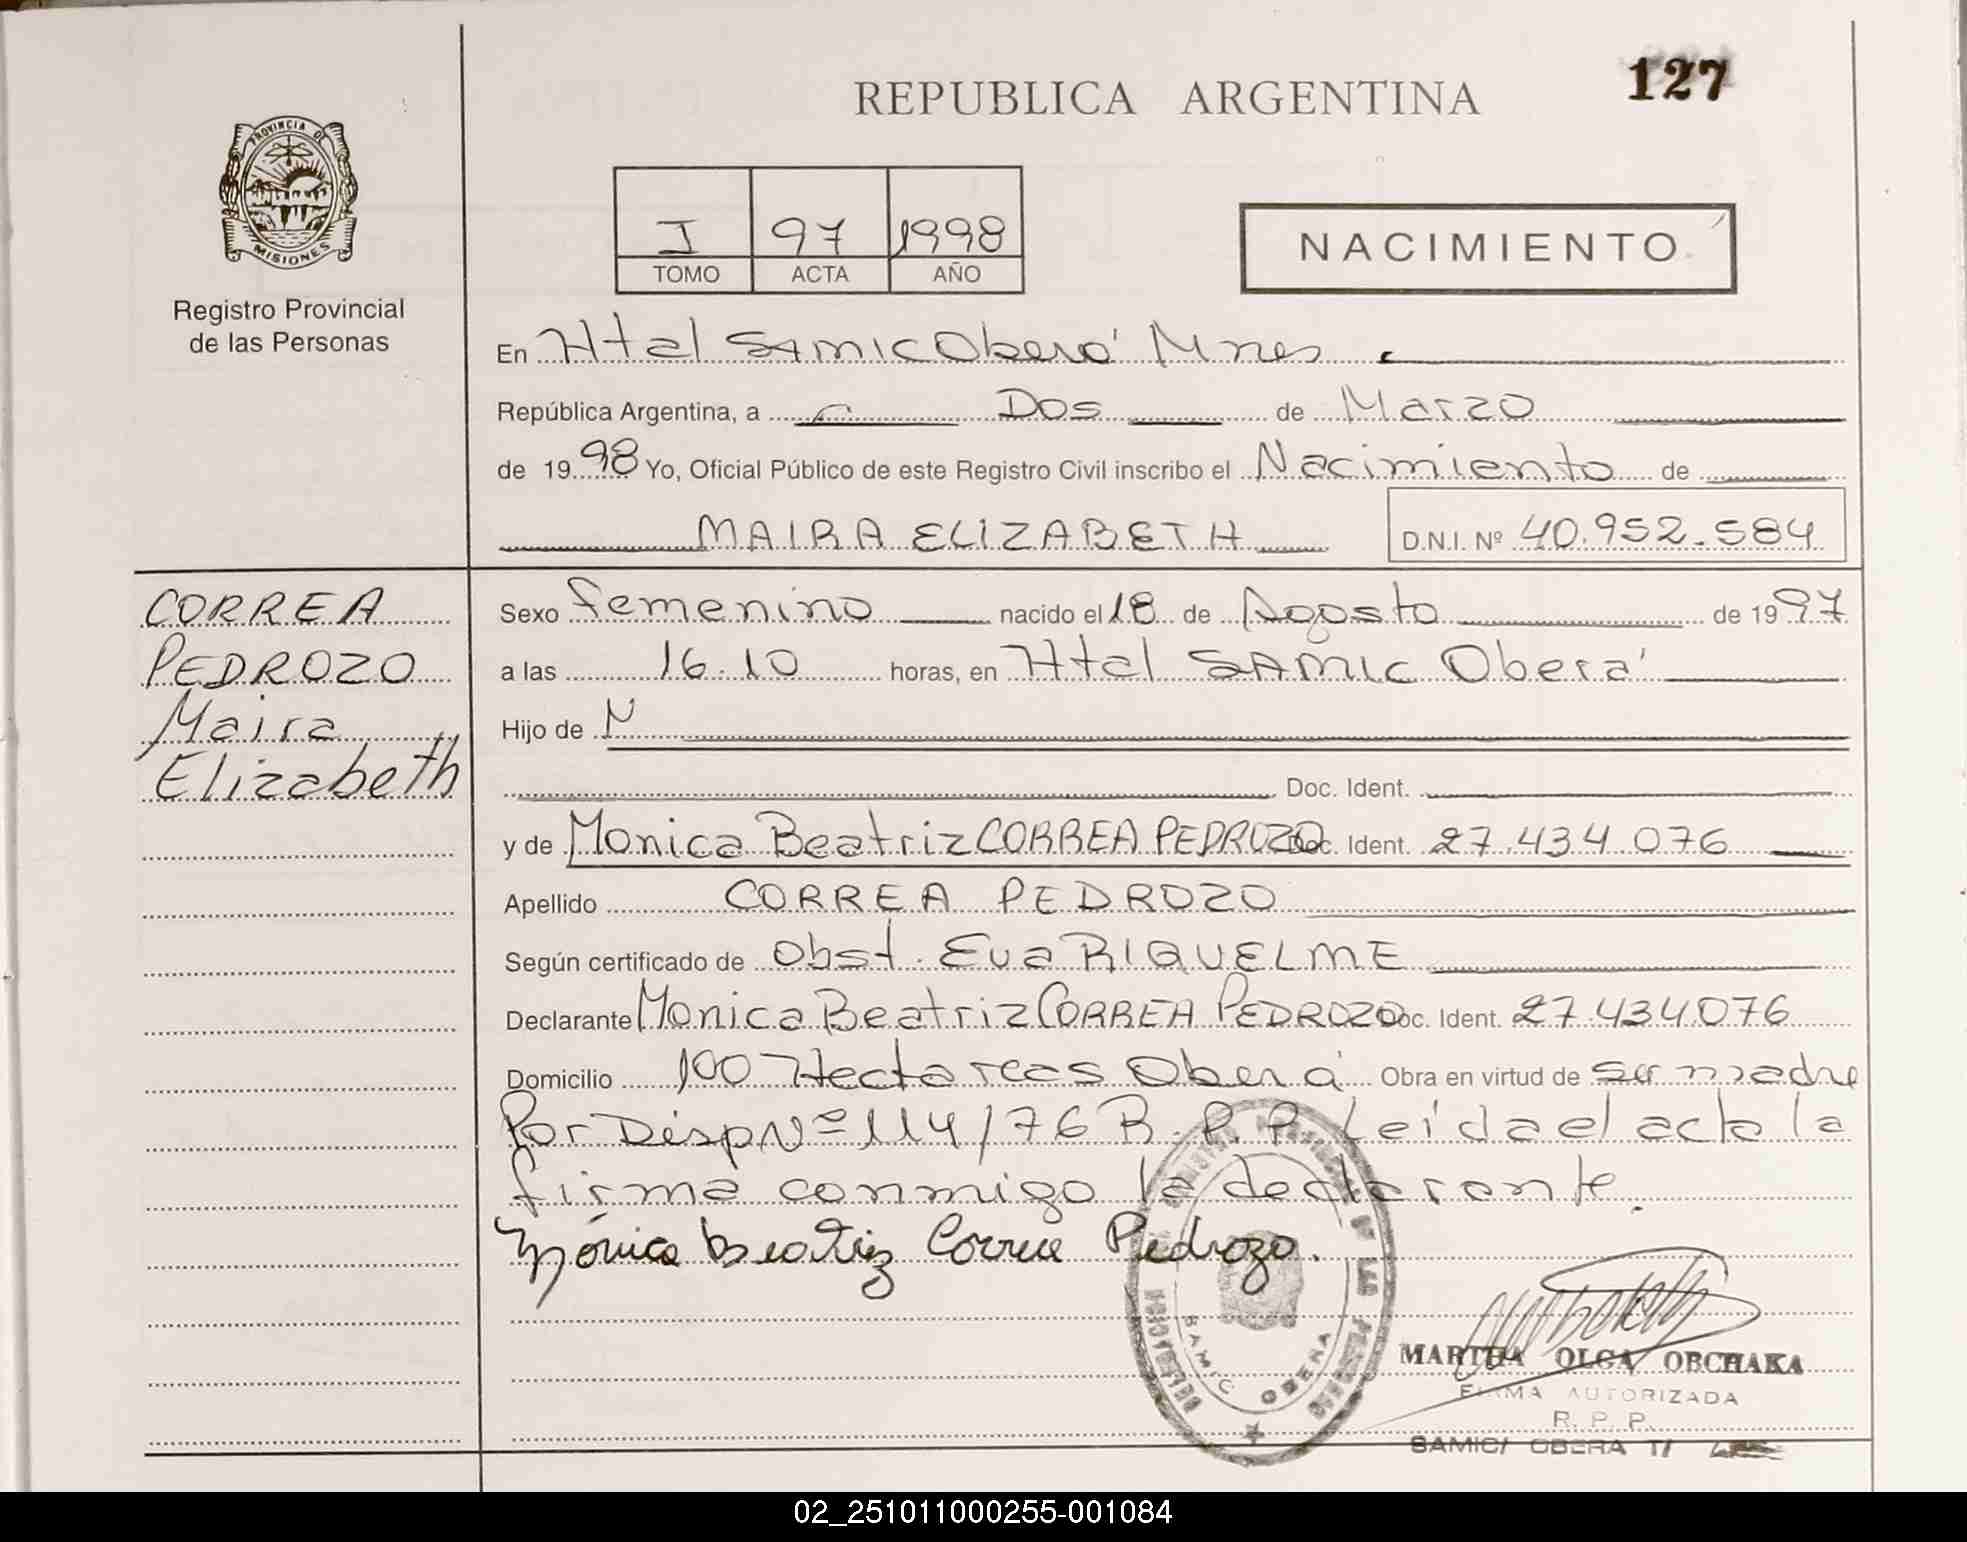 127
REPUBLICA ARGENTINA
PROVINCIA DE
MISIONES
Registro Provincial
de las Personas
I 97 1998
TOMO ACTA AÑO
NACIMIENTO
En Htal SAMIC Oberá Mnes
República Argentina, a Dos de Marzo
de 1998 Yo, Oficial Público de este Registro Civil inscribo el Nacimiento de
MAIRA ELIZABETH D.N.I. Nº 40.952.584
CORREA
PEDROZO
Maira
Elizabeth
Sexo femenino nacido el 18 de Agosto de 1997
a las 16.10 horas, en Htal SAMIC Oberá
Hijo de N
Doc. Ident.
y de Monica Beatriz CORREA PEDROZO Doc. Ident. 27.434.076
Apellido CORREA PEDROZO
Según certificado de Obst. Eva RIQUELME
Declarante Monica Beatriz CORREA PEDROZO Doc. Ident. 27.434.076
Domicilio 100 Hectareas Oberá Obra en virtud de ser madre
Por Disp Nº 114/76 R.P.P. Leida el acta la
firma conmigo la declarante.
Mónica Beatriz Correa Pedrozo.
SAMIC OBERA
MARTHA OLGA OBCHAKA
FIRMA AUTORIZADA
R. P. P.
SAMIC/ OBERA T/
02_251011000255-001084